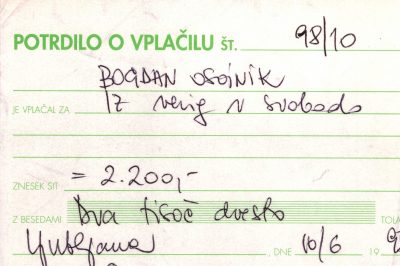 POTRDILO O VPLAČILU ŠT. 98/10
BOGDAN OSOJNIK
JE VPLAČAL ZA IZ verig v svobodo
ZNESEK SIT = 2.200,-
Z BESEDAMI Dva tisoč dvesto TOLA
Ljubljana , DNE 10/6 19